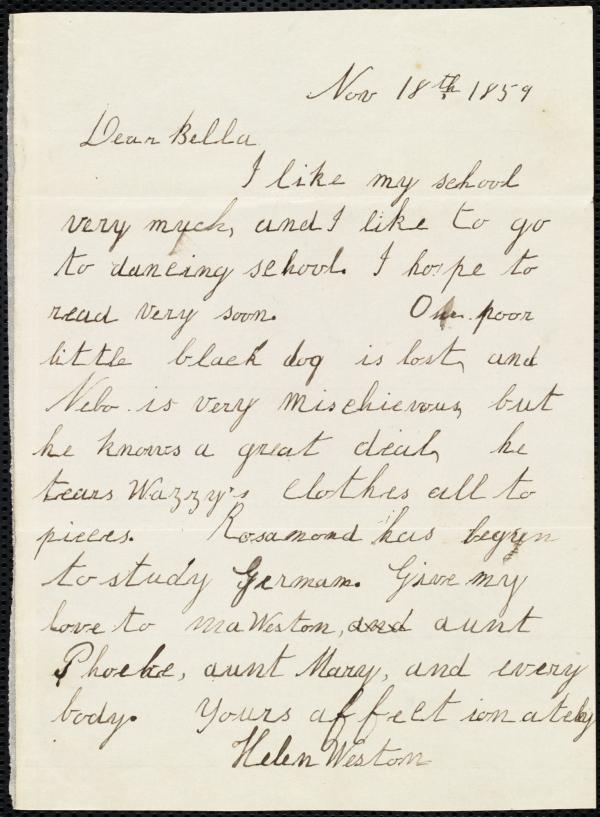 Nov 18th 1859
Dear Bella
I like my school
very myck, and I like to go
to dancing school. I hope to
read very soon. Our poor
little black dog is lost, and
Nebo is very mischievous, but
he knows a great deal, he
tears Wazzy's clothes all to
pieces. Rosamond has begun
to study Germam. Give my
love to ma Weston, and aunt
Phoebe, aunt Mary, and every
body. Yours affectionately
Helen Weston